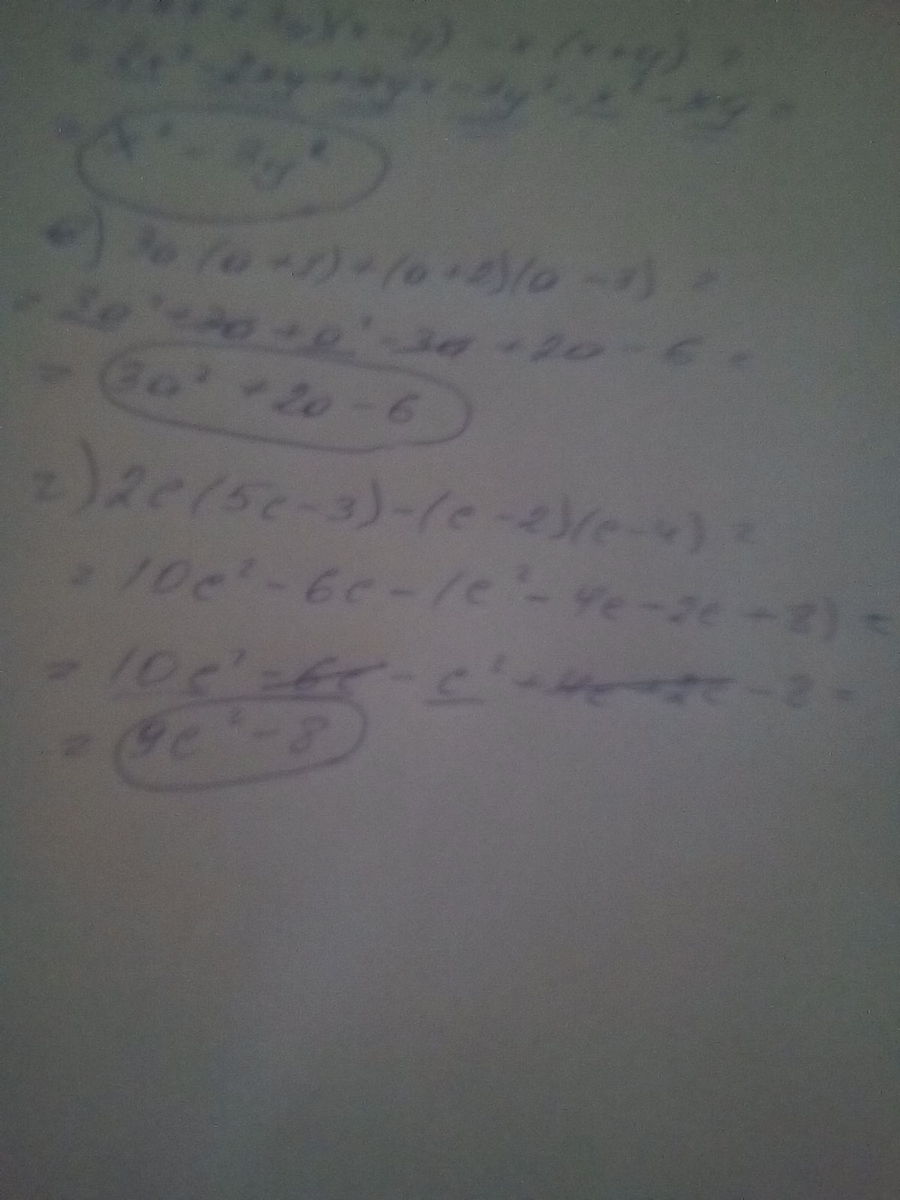 = 2x² - 2xy + 3yx - 3y² - x² - xy =
= x² - 3y²
в) 3a (a + 1) + (a + 2)(a - 3) =
= 3a² + 3a + a² - 3a + 2a - 6 =
= 3a² + 2a - 6
г) 2c (5c - 3) - (c - 2)(c - 4) =
= 10c² - 6c - (c² - 4c - 2c + 8) =
= 10c² - 6c - c² + 4c + 2c - 8 =
= 9c² - 8